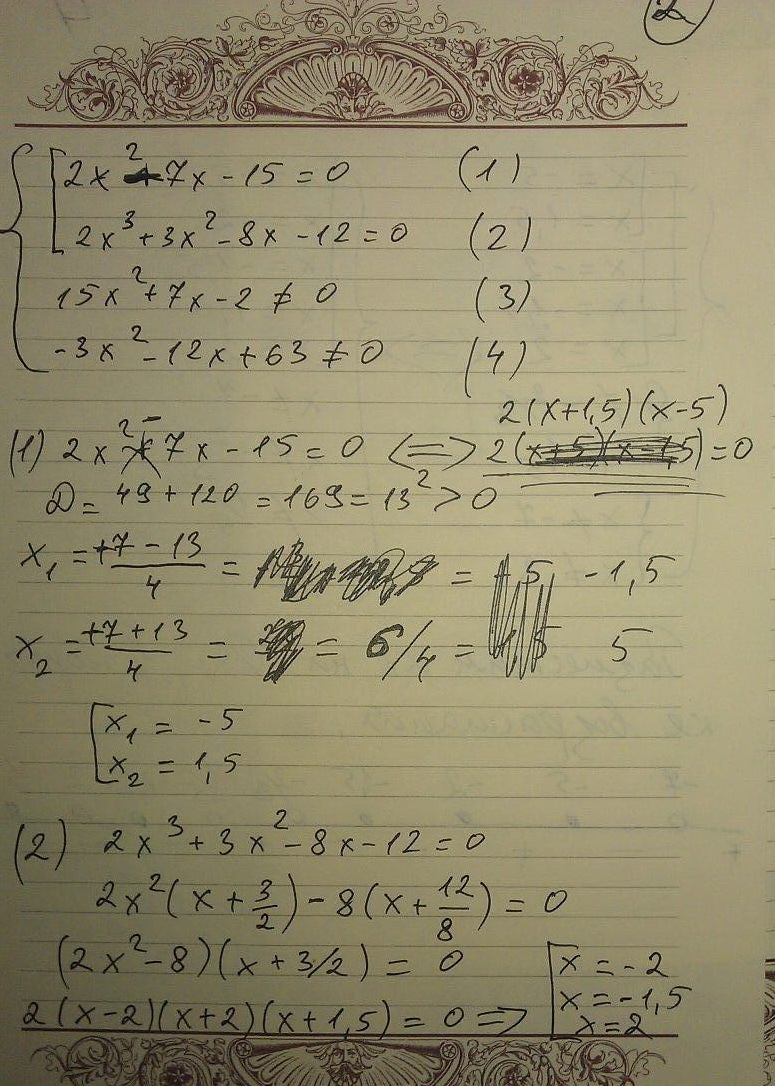 2
2x² - 7x - 15 = 0 (1)
2x³ + 3x² - 8x - 12 = 0 (2)
15x² + 7x - 2 ≠ 0 (3)
-3x² - 12x + 63 ≠ 0 (4)
2(x+1,5)(x-5)
(1) 2x² - 7x - 15 = 0 <=> 2(x+5)(x-1,5) = 0
D = 49 + 120 = 169 = 13² > 0
x₁ = +7 - 13 / 4 = = -1,5
x₂ = +7 + 13 / 4 = = 6/4 = 5
x₁ = -5
x₂ = 1,5
(2) 2x³ + 3x² - 8x - 12 = 0
2x²(x + 3/2) - 8(x + 12/8) = 0
(2x² - 8)(x + 3/2) = 0 [x = -2
x = -1,5
2(x-2)(x+2)(x+1,5) = 0 => x = 2